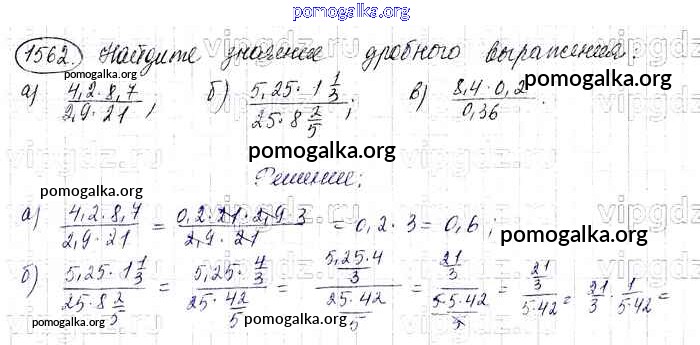 pomogalka.org
1562. Найдите значение дробного выражения:
а) 4,2·8,7 / 2,9·21 ; б) 5,25·1 1/3 / 25·8 2/5 ; в) 8,4·0,2 / 0,36 .
pomogalka.org
pomogalka.org
pomogalka.org
Решение:
pomogalka.org
а) 4,2·8,7 / 2,9·21 = 0,2·21·2,9 3 / 2,9·21 = 0,2·3 = 0,6 ;
pomogalka.org
б) 5,25·1 1/3 / 25·8 2/5 = 5,25·4/3 / 25·42/5 = 5,25·4/3 / 25·42/5 = 21/3 / 5·5·42/5 = 21/3 / 5·42 = 21/3 · 1/5·42 =
pomogalka.org
pomogalka.org
pomogalka.org
vipgdz.ru